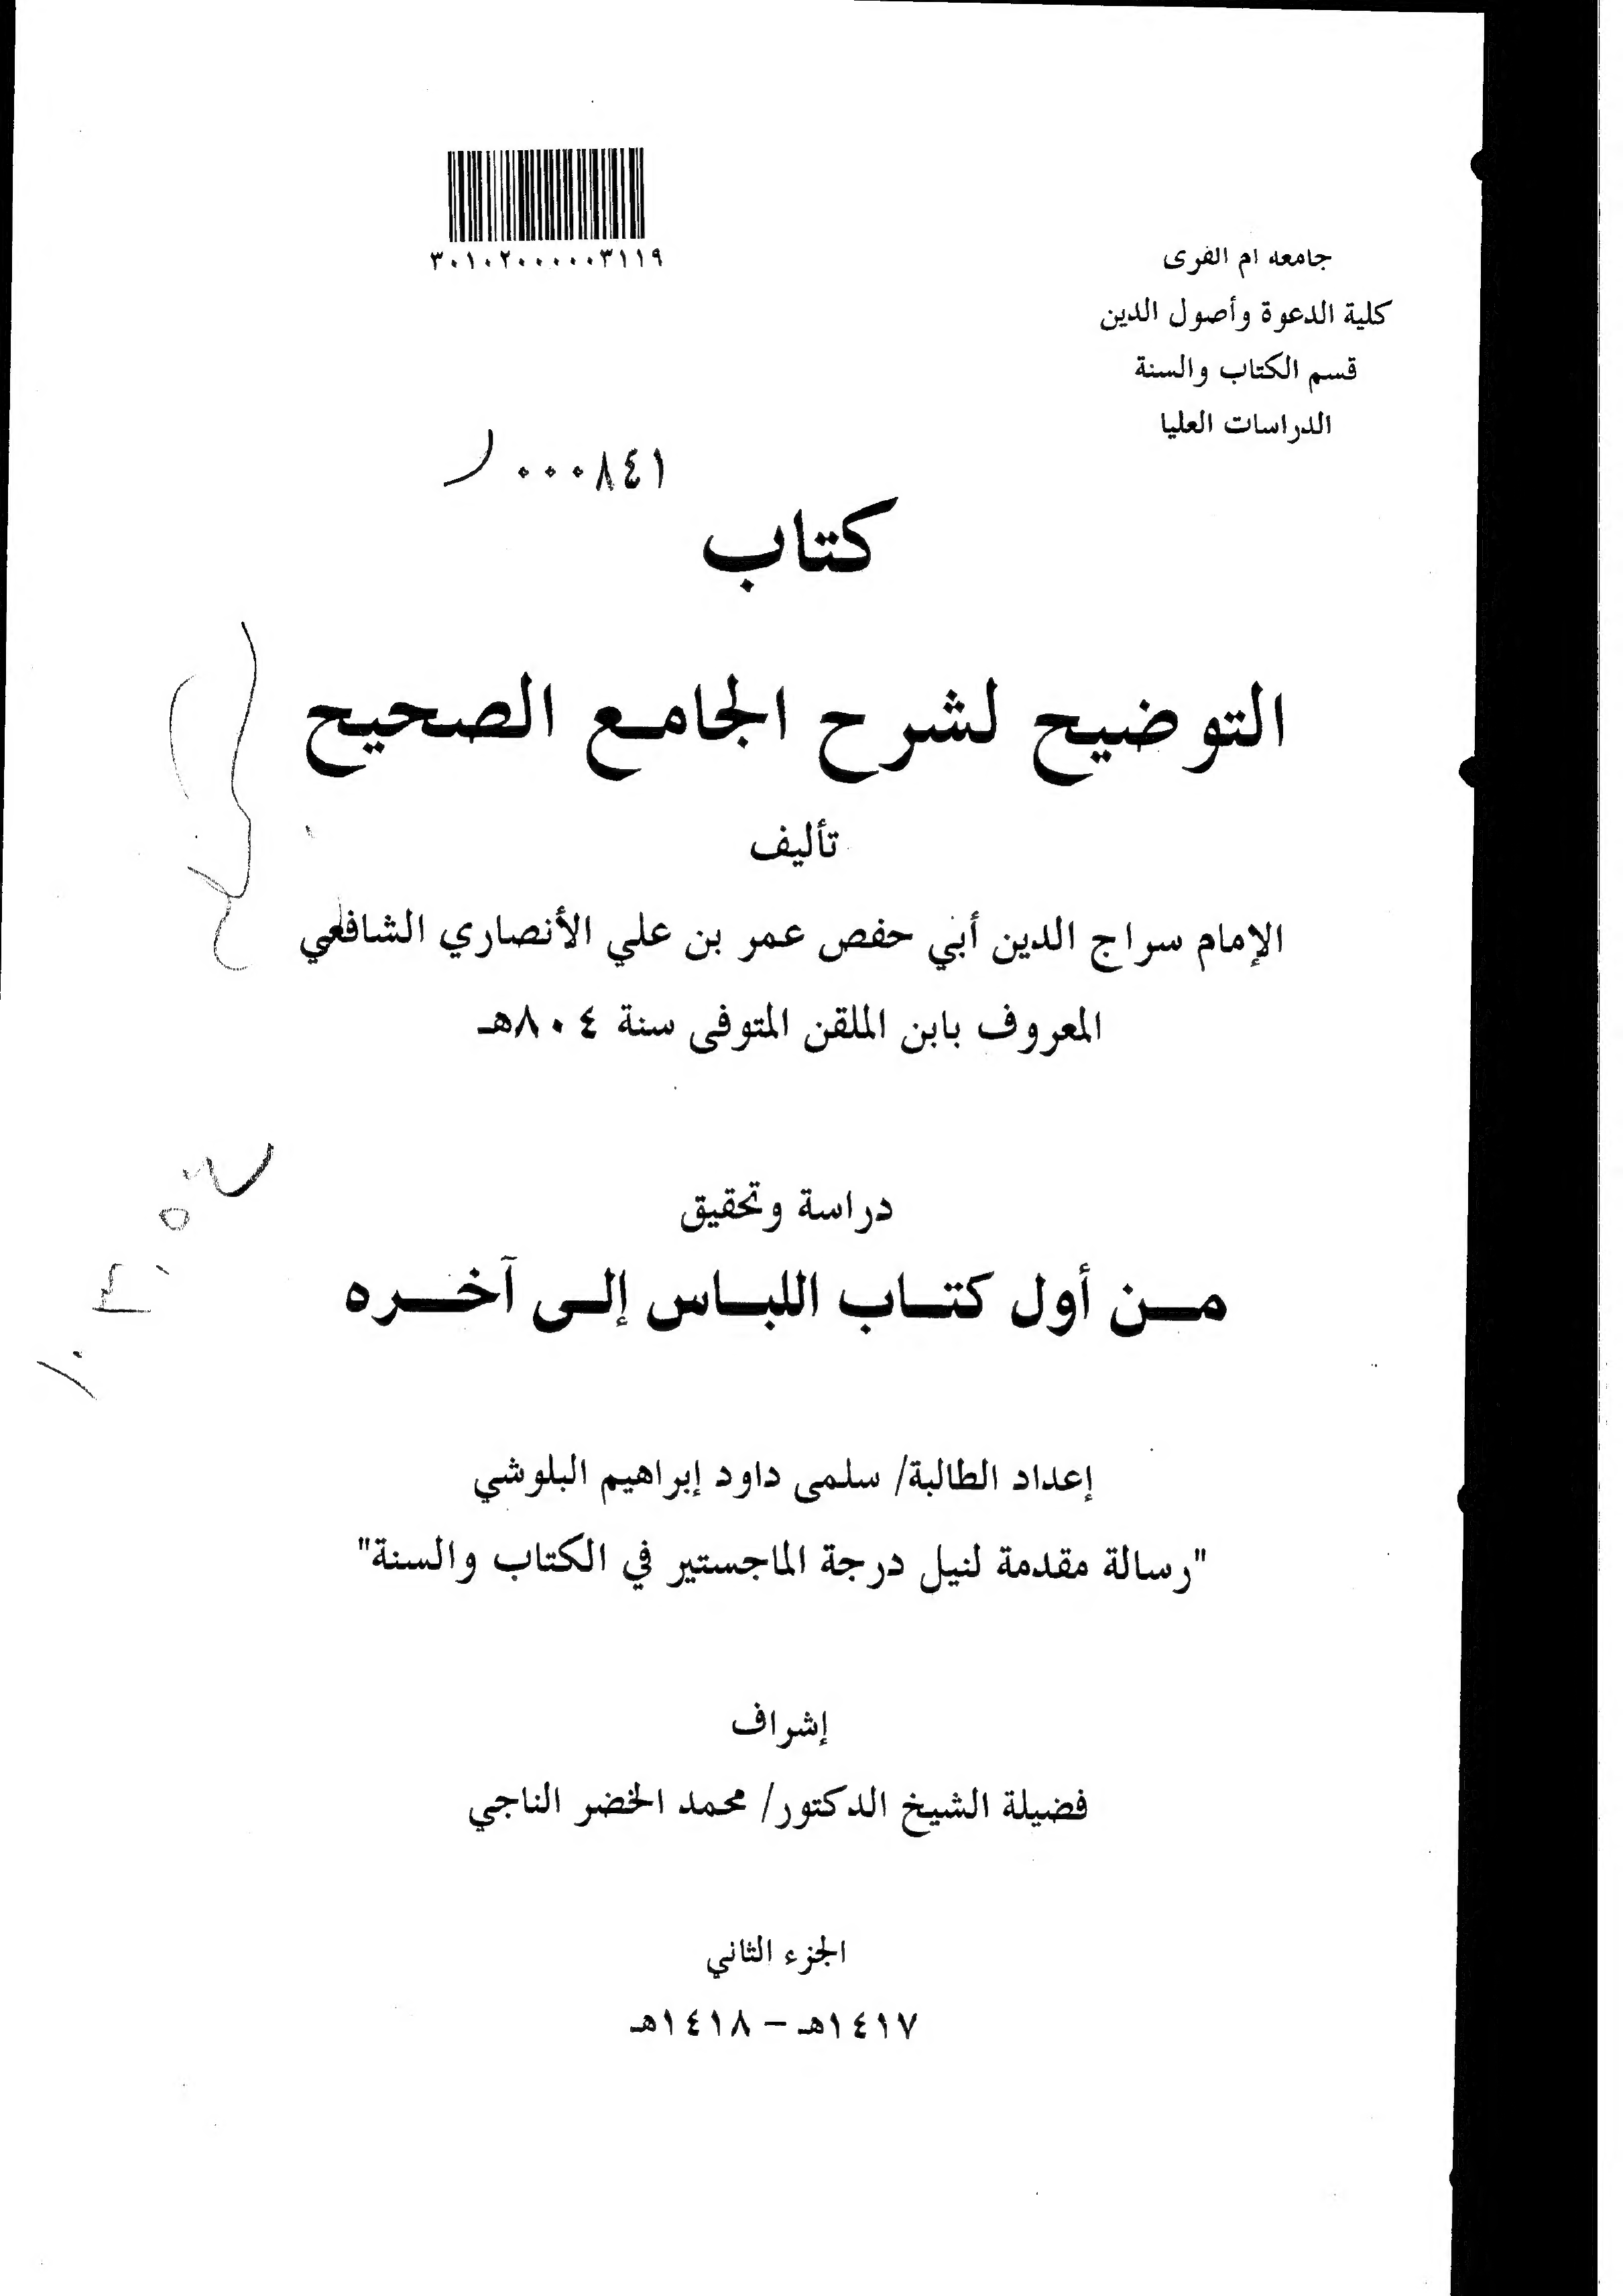 ٣٠١٠٢٠٠٠٠٠٣١١٩
جامعه ام القرى
كلية الدعوة وأصول الدين
قسم الكتاب والسنة
الدراسات العليا
٠٠٠٨٤١
كتاب
التوضيح لشرح الجامع الصحيح
تأليف
الإمام سراج الدين أبي حفص عمر بن علي الأنصاري الشافعي
المعروف بابن الملقن المتوفى سنة ٨٠٤هـ
دراسة وتحقيق
مـن أول كتـاب اللبـاس إلـى آخـره
إعداد الطالبة/ سلمى داود إبراهيم البلوشي
"رسالة مقدمة لنيل درجة الماجستير في الكتاب والسنة"
إشراف
فضيلة الشيخ الدكتور/ محمد الخضر الناجي
الجزء الثاني
١٤١٧هـ – ١٤١٨هـ